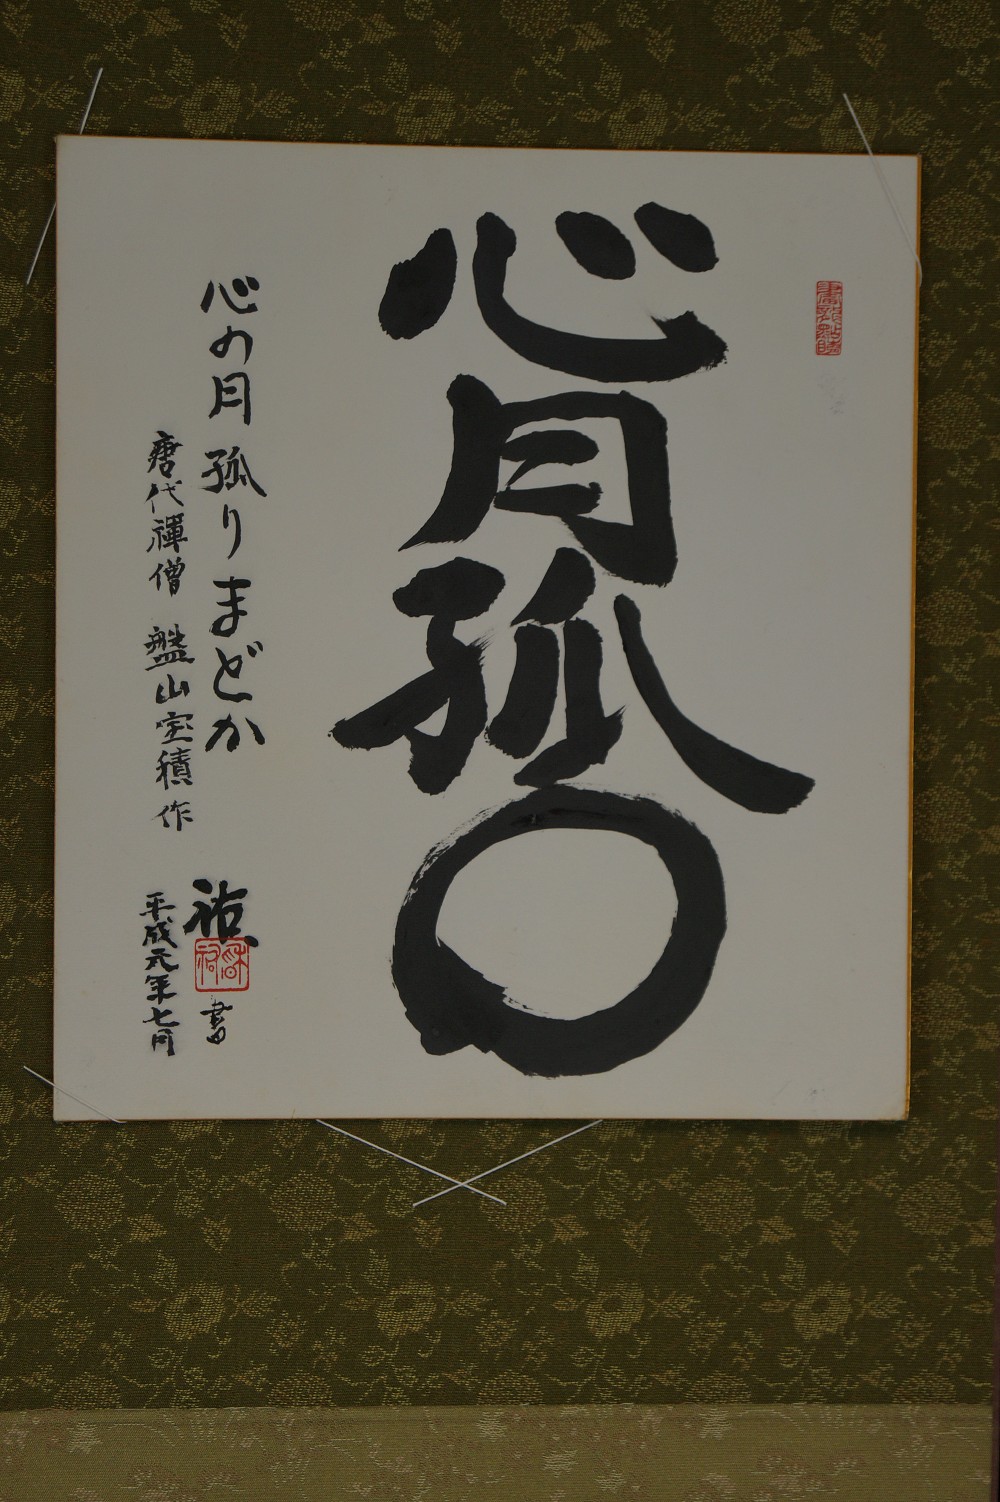 心月孤〇
心の月孤りまどか
唐代禅僧 盤山宝積作
祐 書
平成元年七月